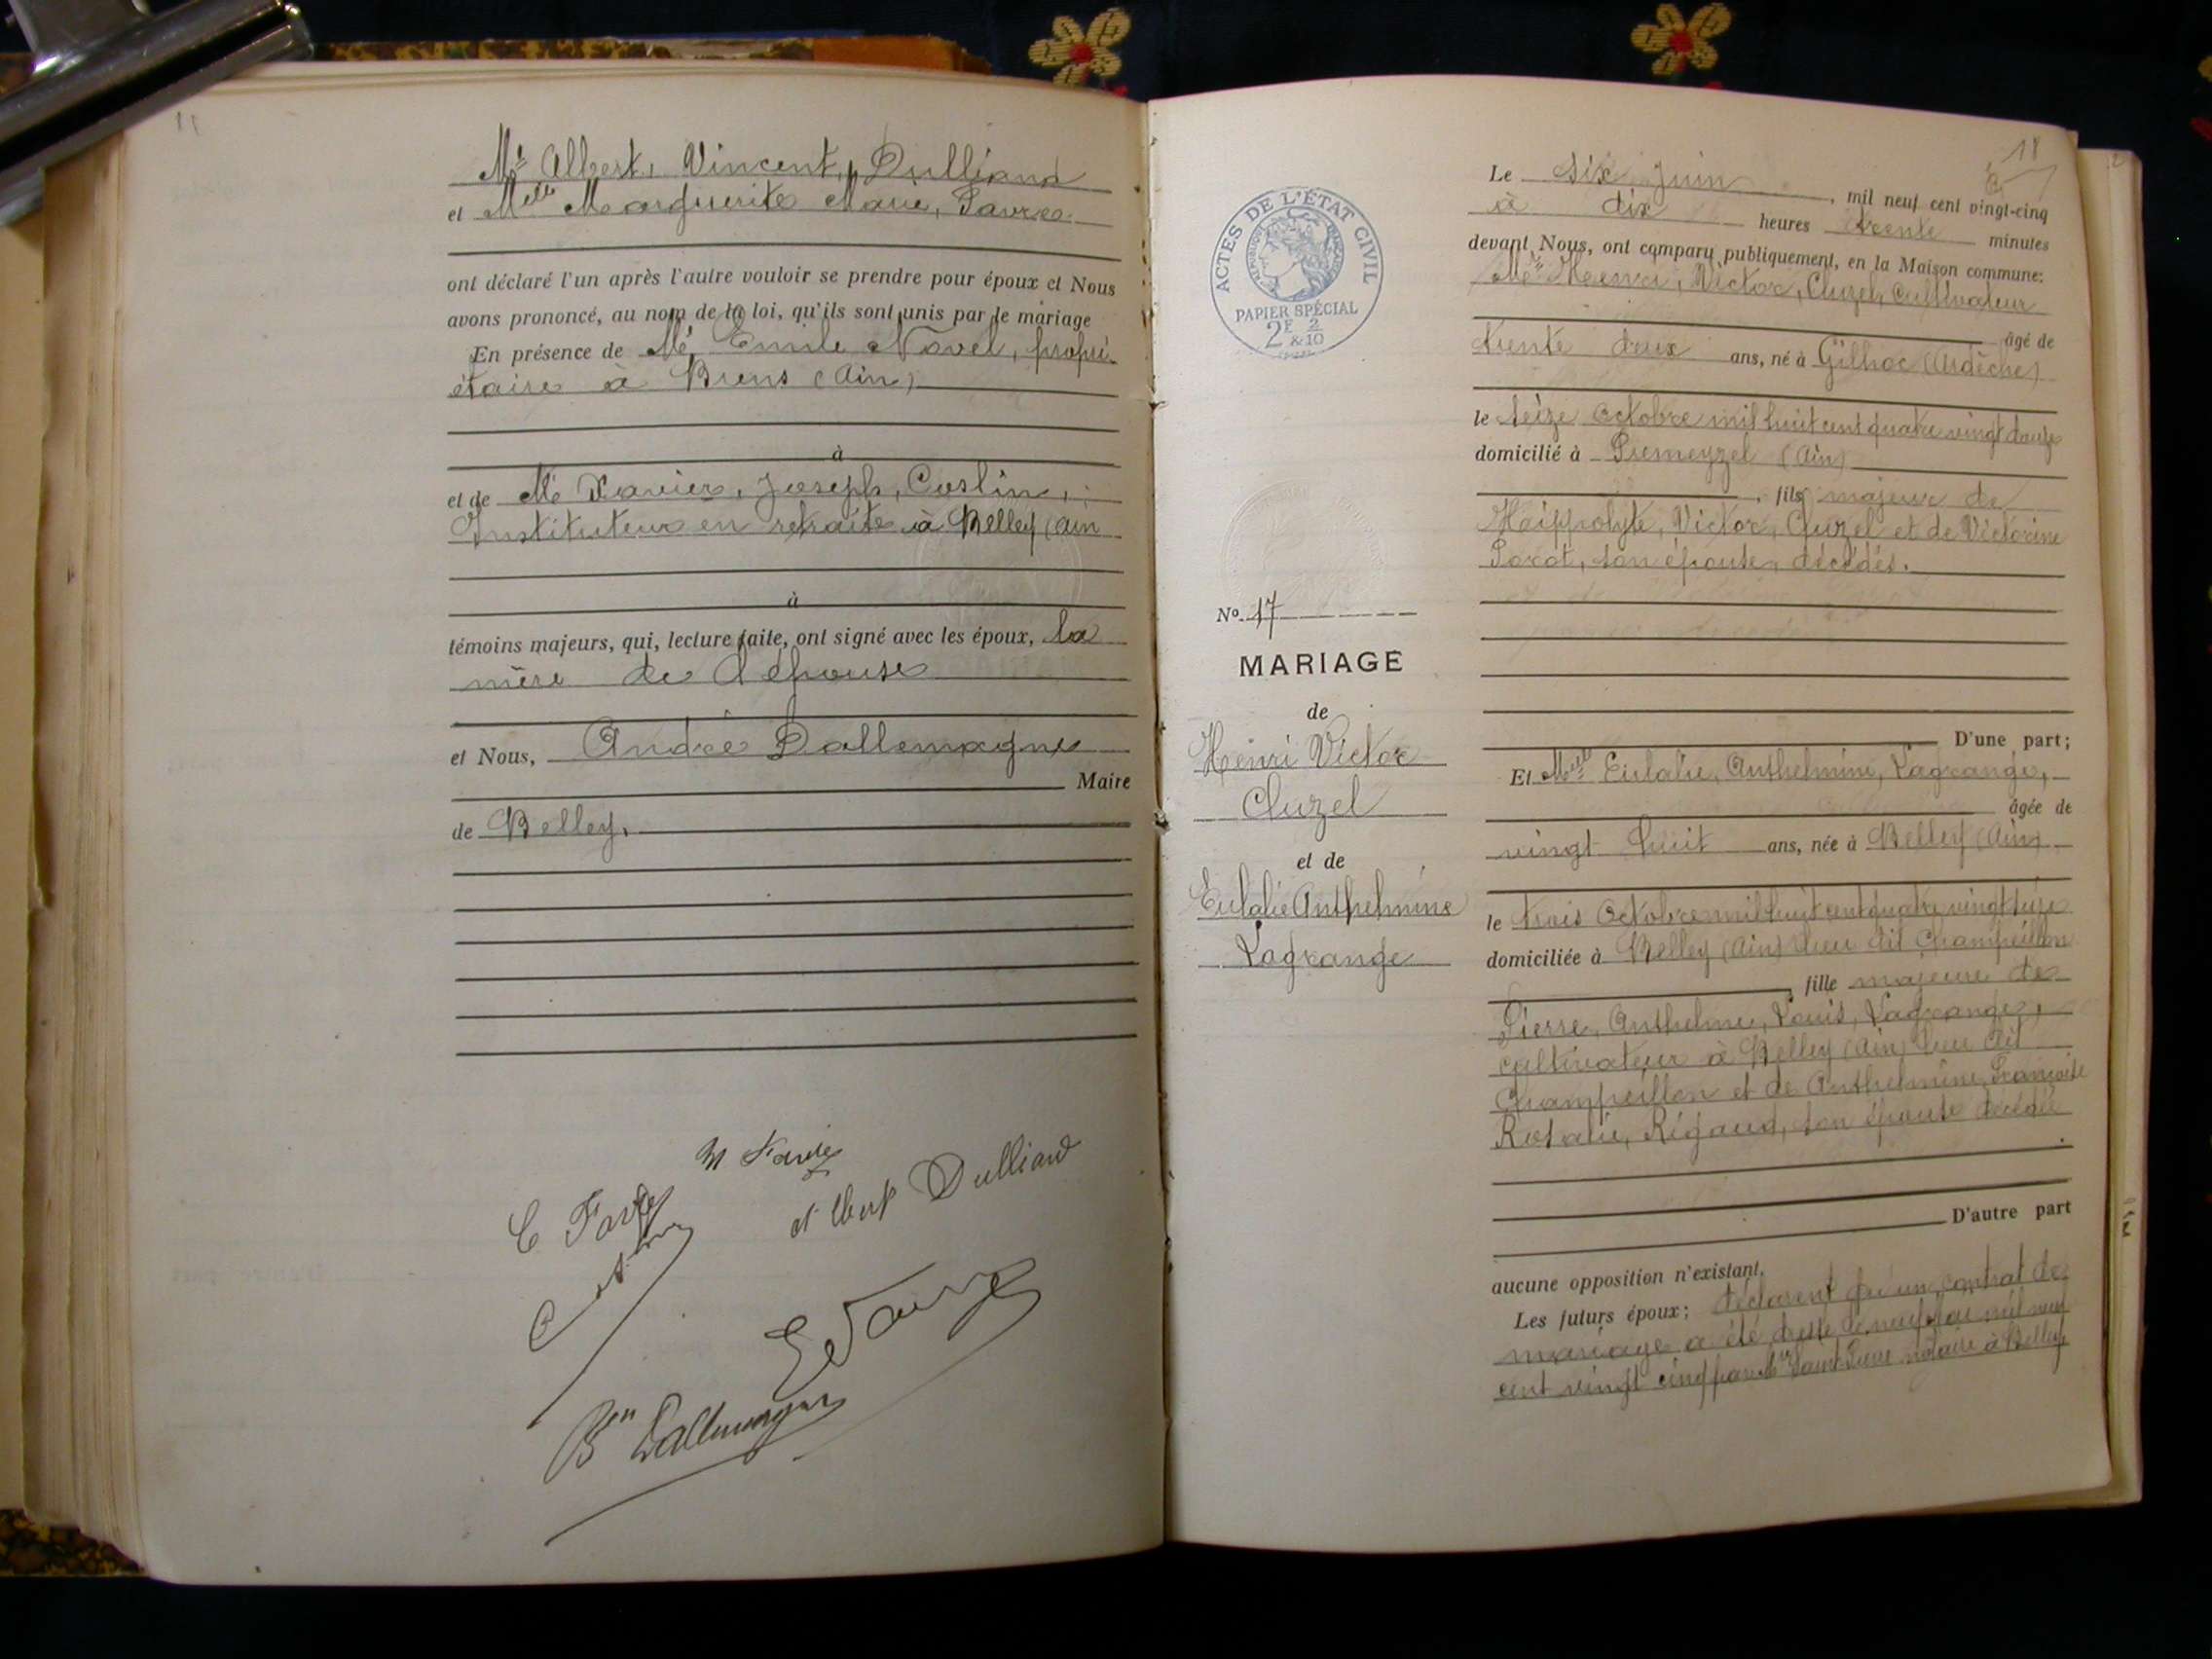 Mr Albert, Vincent, Dulliand
et Melle Marguerite Marie, Favre.
ont déclaré l'un après l'autre vouloir se prendre pour époux et Nous
avons prononcé, au nom de la loi, qu'ils sont unis par le mariage
En présence de Mr Emile Novel, propri-
étaire à Brens (Ain)
à
et de Mr Xavier, Joseph, Coslin,
Instituteur en retraite à Belley (Ain
à
témoins majeurs, qui, lecture faite, ont signé avec les époux, la
mère de l'épouse
et Nous, André Dallemagne
Maire
de Belley.
Albert Dulliand
Bon Dallemagne
18
ACTES DE L'ÉTAT CIVIL
RÉPUBLIQUE FRANÇAISE
PAPIER SPÉCIAL
2F & 2/10
No 17
MARIAGE
de
Henri Victor
Cluzel
et de
Eulalie Anthelmine
Lagrange
Le six juin, mil neuf cent vingt-cinq
à dix heures trente minutes
devant Nous, ont comparu publiquement, en la Maison commune:
Mr Henri, Victor, Cluzel, cultivateur
âgé de
trente deux ans, né à Gilhoc (Ardèche)
le seize octobre mil huit cent quatre vingt douze
domicilié à Premeyzel (Ain)
, fils majeur de
Hippolyte, Victor, Cluzel et de Victorine
son épouse, décédés.
D'une part;
Et Melle Eulalie, Anthelmine, Lagrange,
âgée de
vingt huit ans, née à Belley (Ain)
le trois Octobre mil huit cent quatre vingt seize
domiciliée à Belley (Ain) lieu dit Champeillon
, fille majeure de
Pierre, Anthelme, Louis, Lagrange,
cultivateur à Belley (Ain) lieu dit
Champeillon et de Anthelmine, Françoise
Rosalie, Rigaud, son épouse décédée
D'autre part
aucune opposition n'existant.
Les futurs époux; déclarent qu'un contrat de
mariage a été dressé le neuf mai mil neuf
cent vingt cinq par Me Saint-Pierre notaire à Belley